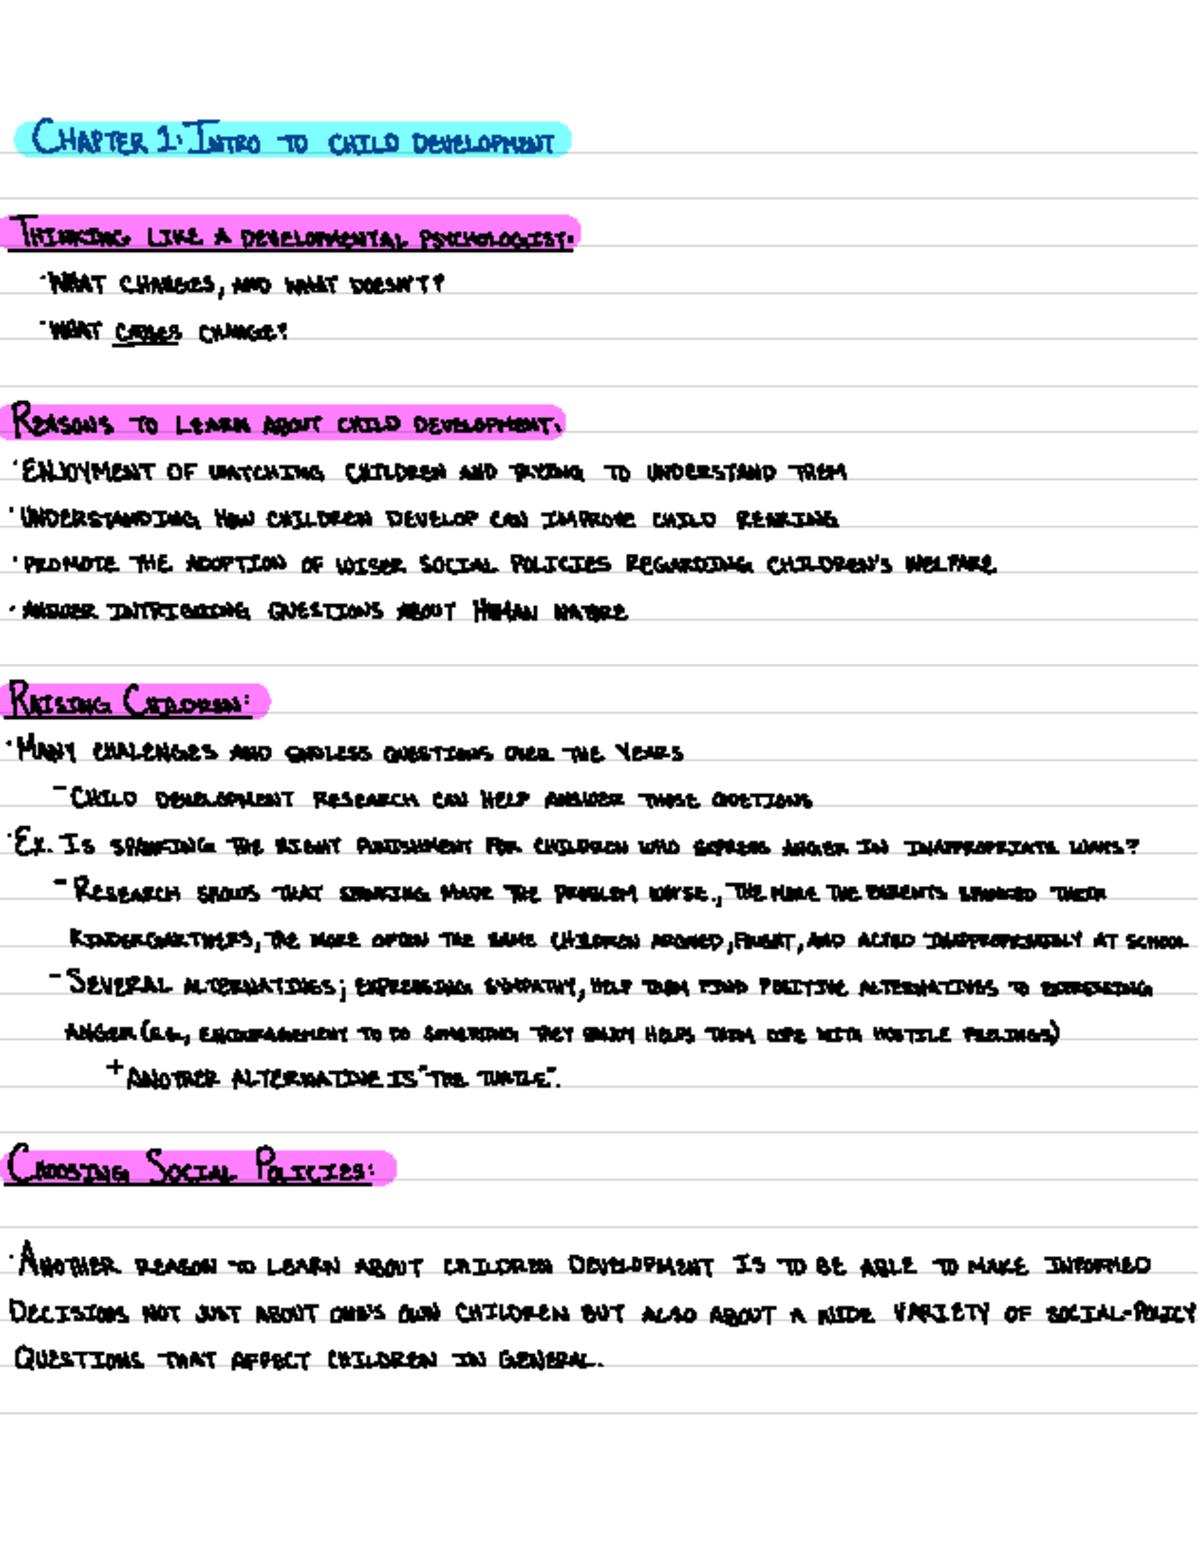 Chapter 1: Intro to child development
Thinking like a developmental psychologist:
·What changes, and what doesn't?
·What causes change?
Reasons to learn about child development:
·Enjoyment of watching children and trying to understand them
·Understanding how children develop can improve child rearing
·Promote the adoption of wiser social policies regarding children's welfare
·Answer intriguing questions about Human nature
Raising Children:
·Many chalenges and endless questions over the years
-Child development research can help answer those quetions
·Ex. Is spanking the right punishment for children who express anger in inappropriate ways?
-Research shows that spanking made the problem worse., the more the parents spanked their
kindergartners, the more often the same children argued, fought, and acted inappropriately at school
-Several alternatives; expressing sympathy, help them find positive alternatives to expressing
anger (e.g., encouragement to do something they enjoy helps them cope with hostile feelings)
+Another alternative is "the turtle".
Choosing Social Policies:
·Another reason to learn about children development is to be able to make informed
decisions not just about one's own children but also about a wide variety of social-policy
questions that affect children in general.